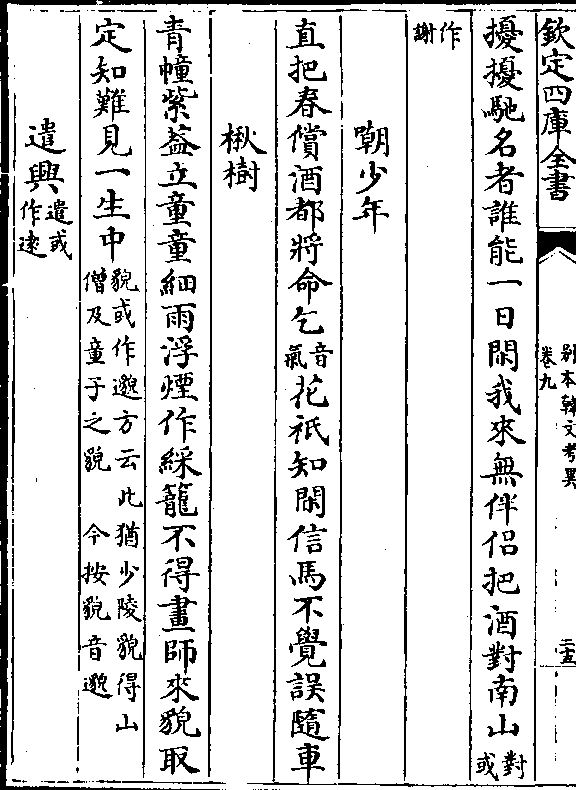 欽定四庫全書
別本韓文考異
卷九
二五
擾擾馳名者誰能一日閑我來無伴侶把酒對南山對或
作謝
嘲少年
直把春償酒都將命乞音氣花祇知閑信馬不覺誤隨車
楸樹
青幢紫蓋立童童細雨浮煙作綵籠不得畫師來貌取
定知難見一生中貌或作邈方云此猶少陵貌得山僧及童子之貌今按貌音邈
遣興遣或作逺